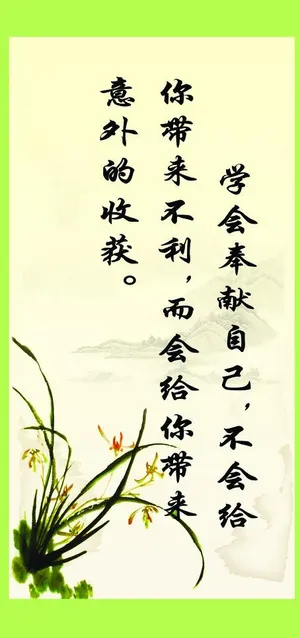 学会奉献自己，不会给
你带来不利，而会给你带来
意外的收获。